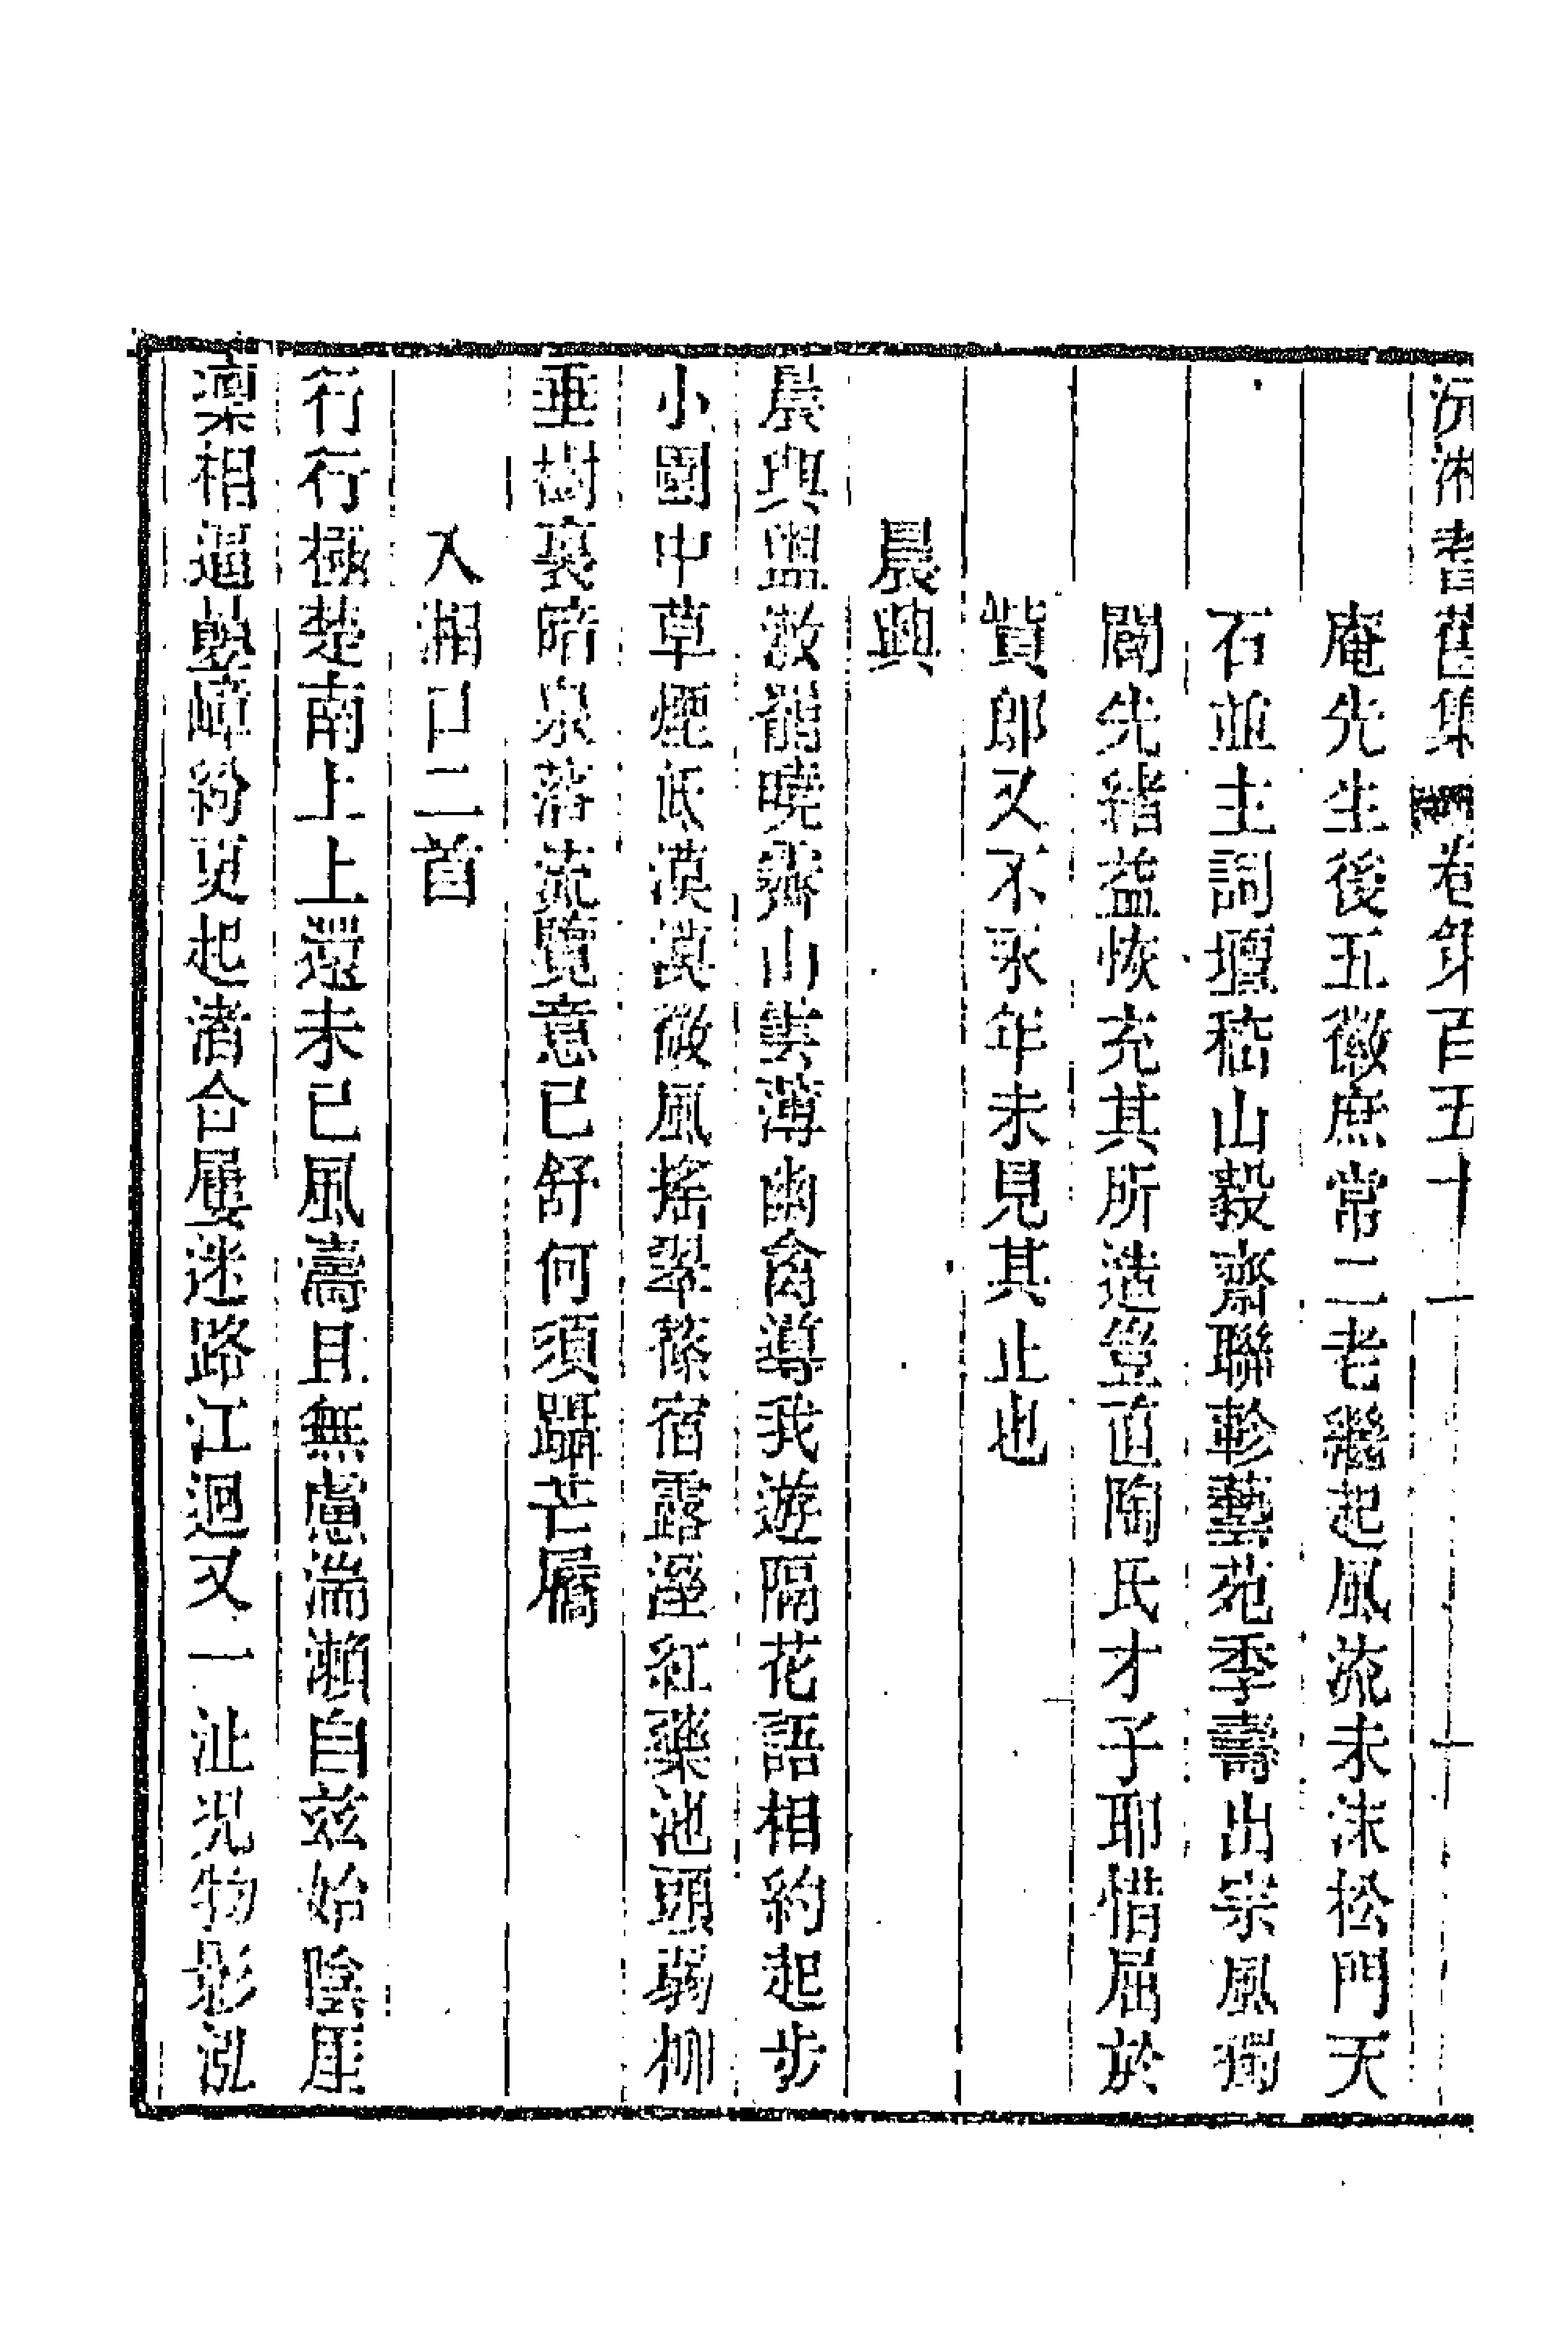 沅湘耆舊集 卷第百五十一 十
庵先生後五徽庶常二老繼起風流未沫松門天
石並主詞壇嵇山毅齋聯軫藝苑季壽出宗風獨
闡先緒益恢充其所造豈直陶氏才子耶惜屈於
貲郎又不永年未見其止也
晨興
晨興盥漱罷曉霽山雲薄幽禽導我遊隔花語相約起步
小園中草煙低漠漠微風搖翠篠宿露溼紅藥池頭弱柳
垂樹裏暗泉落流覽意已舒何須躡芒屩
入湘口二首
行行極楚南上上還未已風濤且無慮湍瀨自玆始陰厓
凜相逼疊嶂紛更起渚合屢迷路江迴又一沚況物影泓